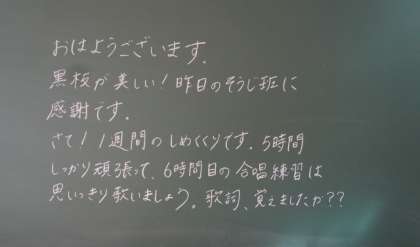 おはようございます.
黒板が美しい！昨日のそうじ班に
感謝です.
さて！1週間のしめくくりです. 5時間
しっかり頑張って、6時間目の合唱練習は
思いっきり歌いましょう。歌詞、覚えましたか??